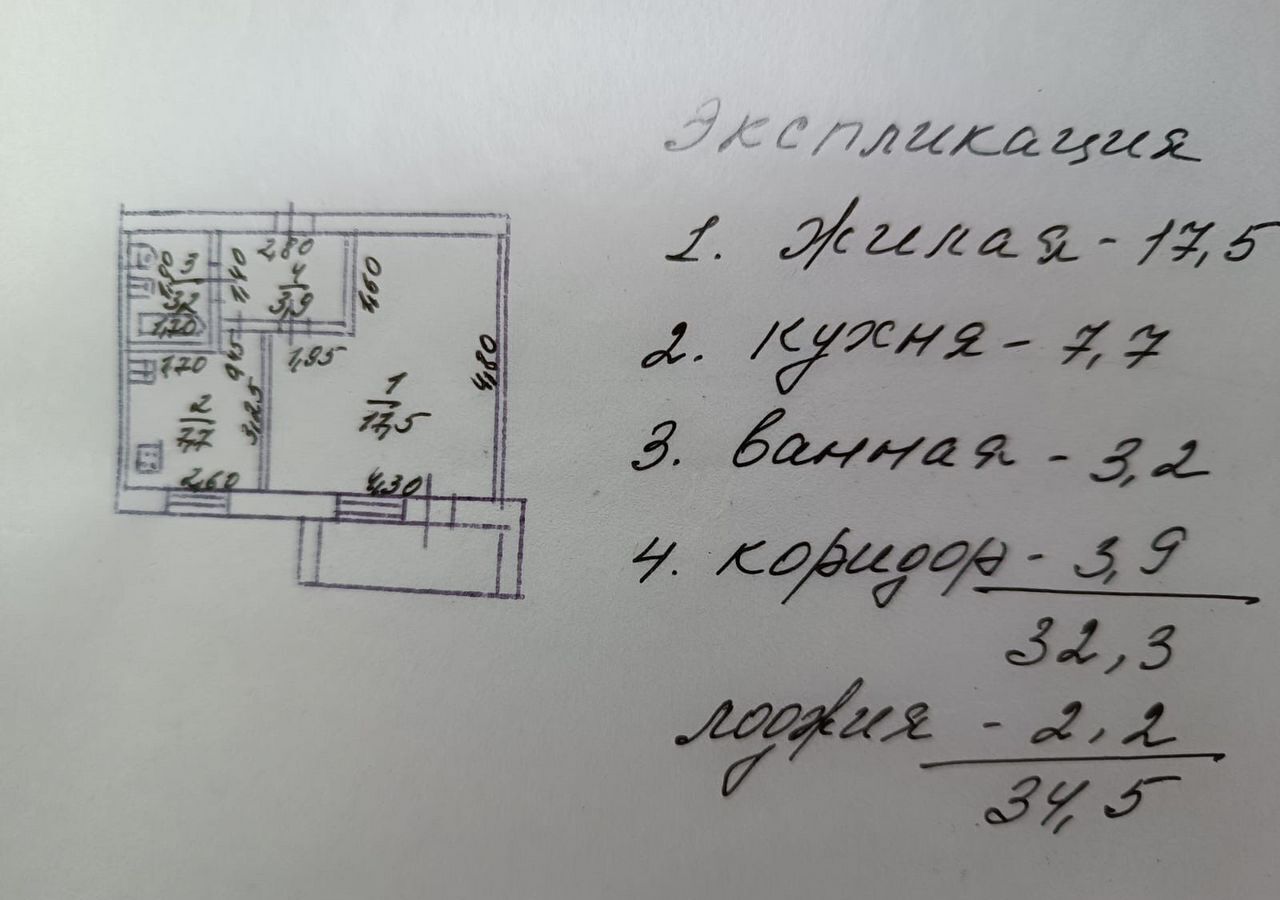 Экспликация
1. жилая - 17,5
2. кухня - 7,7
3. ванная - 3,2
4. коридор - 3,9
32,3
лоджия - 2,2
34,5
2,80
3
3,2
1,80
1,40
4
3,9
1,60
1,70
1,70
95
1,95
4,80
1
17,5
2
7,7
3,25
2,60
4,30